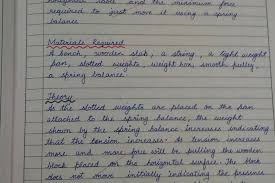 horizontal table and the minimum force
required to just move it using a spring
balance
Materials Required
A bench, wooden slab, a string, a light weight
pan, slotted weights, weight box, smooth pulley,
a spring balance.
Theory
As the slotted weights are placed on the pan
attached to the spring balance, the weight
shown by the spring balance increases indicating
that the tension increases. As tension increases
more and more force will be pulling the wooden
block placed on the horizontal surface. The block
does not move initially indicating the pressures